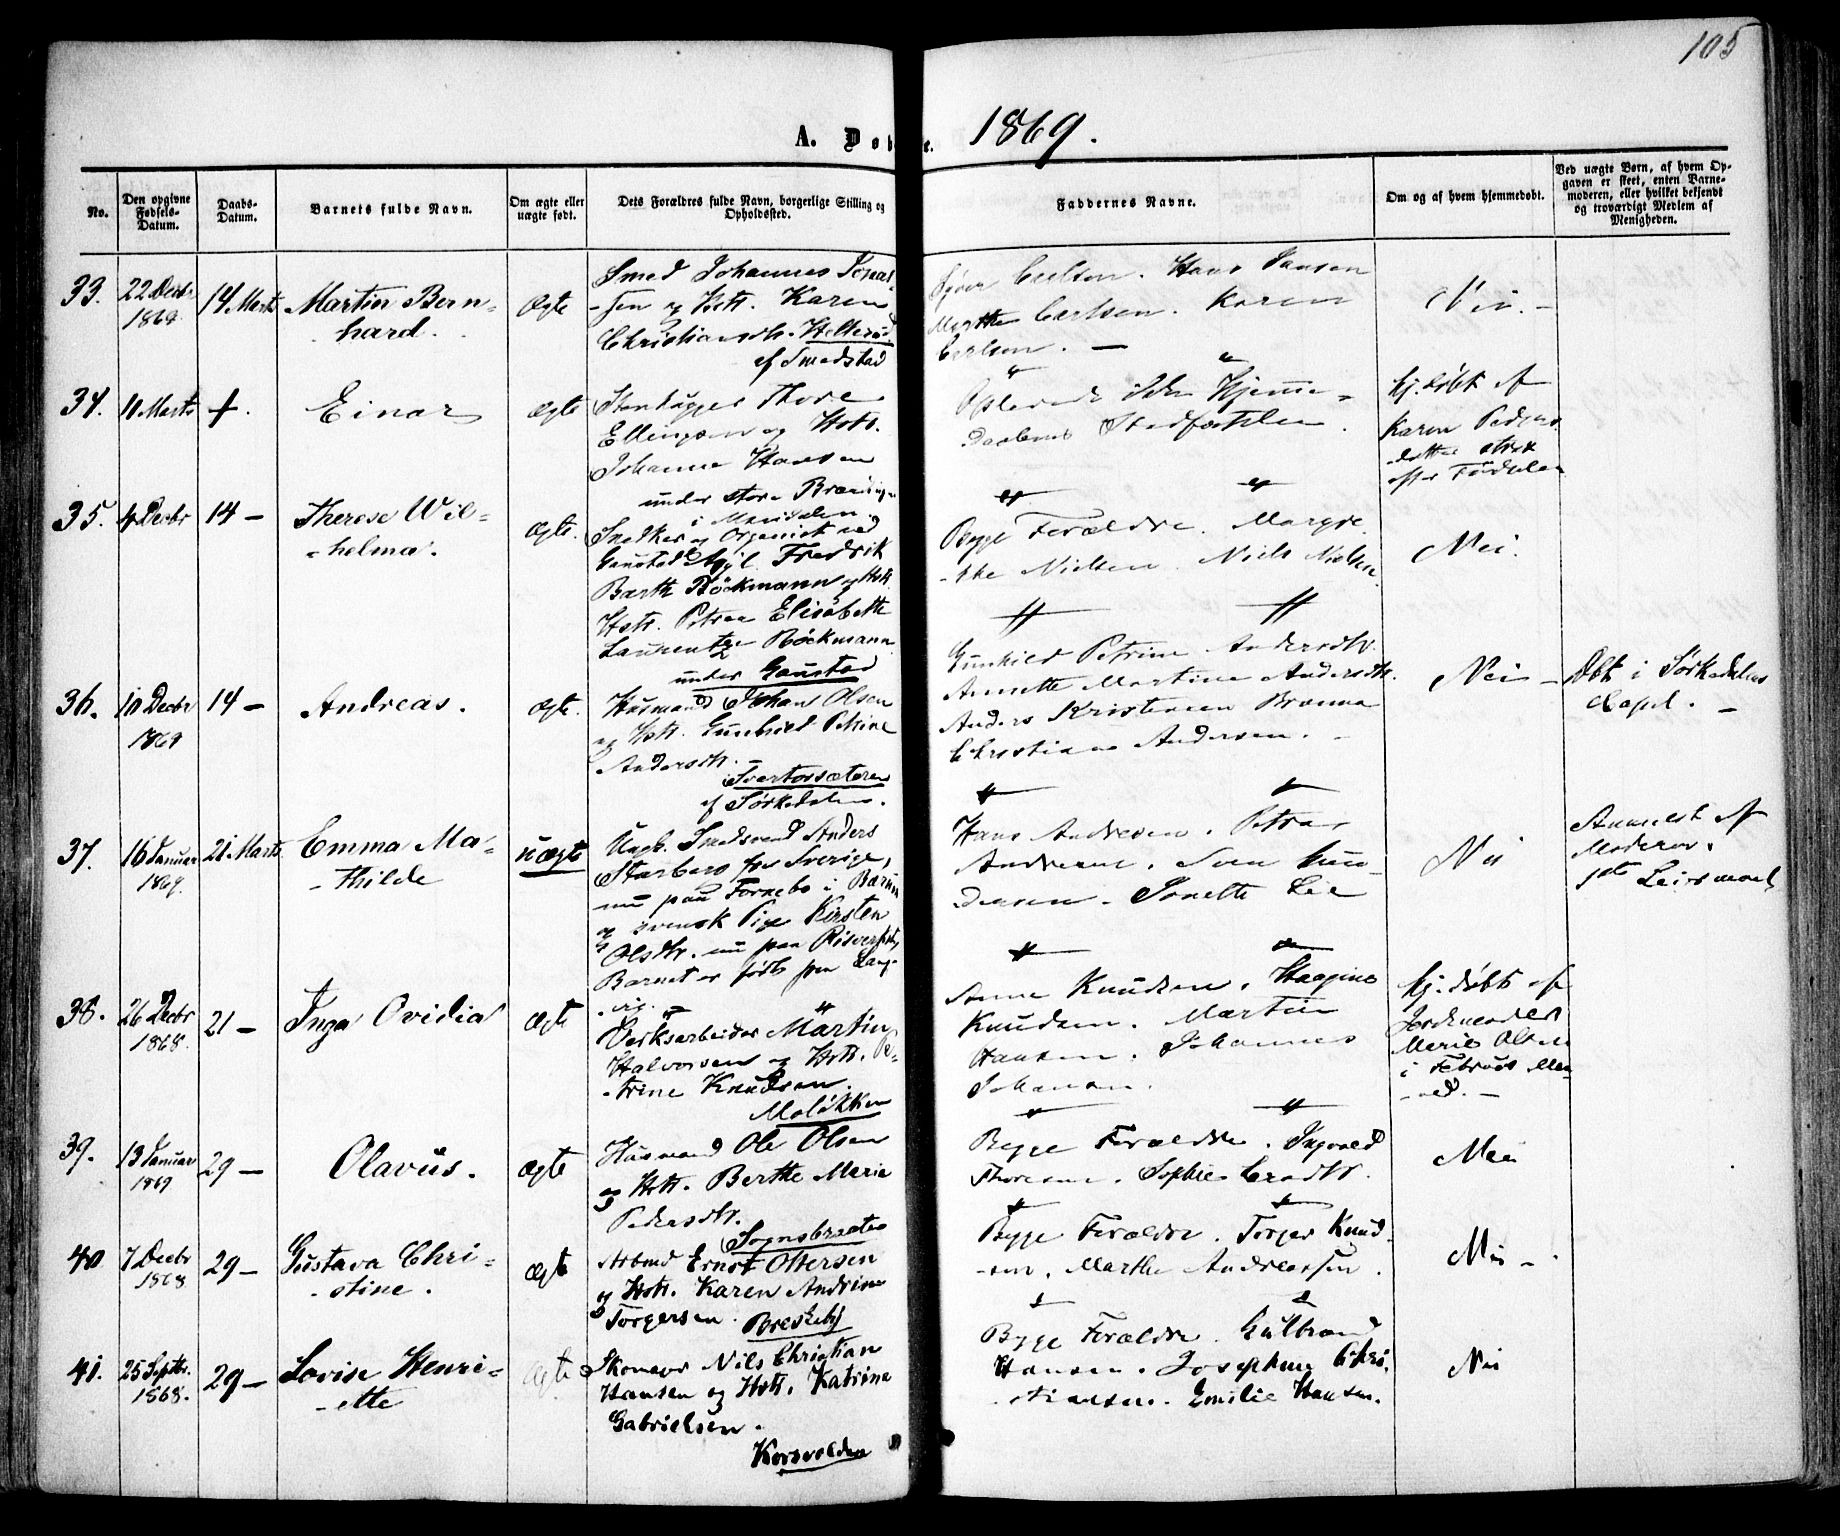 105
A. Døbte. 1869.
No.
Den opgivne Fødsels-Datum.
Daabs-Datum.
Barnets fulde Navn.
Om ægte eller uægte født.
Dets Forældres fulde Navn, borgerlige Stilling og Opholdssted.
Faddernes Navne.
Om og af hvem hjemmedøbt.
Ved uægte Børn, af hvem Opgaven er skeet, enten Barnemoderen, eller hvilket bekjendt og troværdigt Medlem af Menigheden.
33. 22 Decbr 1869 14 Marts
Martin Bern-
-hard.
Ægte
Smed Johannes Jonas-
-sen og Hstr. Karen
Christiansdtr. Hellerud
af Smedstad
Carlsen. Hans Jansen
Marthe Carlsen. Karen
Carlsen. —
Nei. -
34. 11 Marts +.
Einar
Ægte
Stenhugger Thore
Ellingsen og Hstr.
Johanne Hansen
under store Brænningen
i Maridalen.
Hjemme-
daabens Stadfæstelse.
hj. døbt af
Karen Peders-
-datter strax
efter Fødselen
35. 4 Decbr 14 —
Therese Wil-
-helma.
Ægte.
Snedker og Organist ved
Gaustad Asyl Fredrik
Barth Röckmann og Hstr.
Hstr. Petrea Elisabeth
Laurentze Röckmann
under Gaustad
Begge Forældre. Margre-
-the Nielsen. Niels Nielsen.
Nei.
36. 10 Decbr 1869 14 —
Andreas.
Ægte.
Husmand Johans Olsen
og Hstr. Gunhild Petrine
Andersdtr. —
Svartorsæteren
af Sørkedalen.
Gunhild Petrine Andersdtr.
Annette Martine Andersdtr.
Anders Kristensen Brenna
Christiane Andersen. -
Nei —
Dbt i Sørkedalens
Capel. —
37. 16 Januar 1869. 21 Marts
Emma Ma-
-thilde
uægte
Ungk. Smedsvend Anders
Starberg fra Sverige,
nu paa Fornebo i Bærum
og svensk Pige Kirsten
Olsdtr. nu paa
Barnet er født paa Lang-
-vig. —
Hans Andresen. Petra
Andresen. Sven Gun-
dersen. Jonette Lie
Nei
Anmeldt af
Moderen.
1ste Leiermaal
38. 26 Decbr 1868. 21 —
Inga Ovidia
Ægte
Værksarbeider Martin
Halvorsen og Hstr. Pe-
-trine Knudsen.
Moløkken
Anna Knudsen. Haagine
Knudsen. Martin
Hansen. Johannes
Johansen.
hj. døbt af
Jordemoder
Marie Olsen
i Februar Maa-
-ned. —
39. 13 Januar 1869 29 —
Olavus.
Ægte
Husmand Ole Olsen
og Hstr. Berthe Marie
Pedersdtr.
Sognsbraaten
Begge Forældre. Ingvald
Thoresen. Sophie
Nei
40 7 Decbr 1868 29 —
Gustava Chri-
-stine.
Ægte
Arbmd Ernst Ottersen
og Hstr. Karen Andrine
Torgersen. Breskeby
Begge Forældre. Torger Knud-
-sen. Marthe Andreassen.
Nei -
41. 25 Septbr. 1868. 29 —
Lovise Henri-
-ette
Ægte
Skomager Nils Christian
Hansen og Hstr. Katrine
Gabrielsen.
Korsvolden
Begge Forældre. Gulbrand
Hansen. Josephine Chri-
-stiansen. Emilie Hansen.
Nei